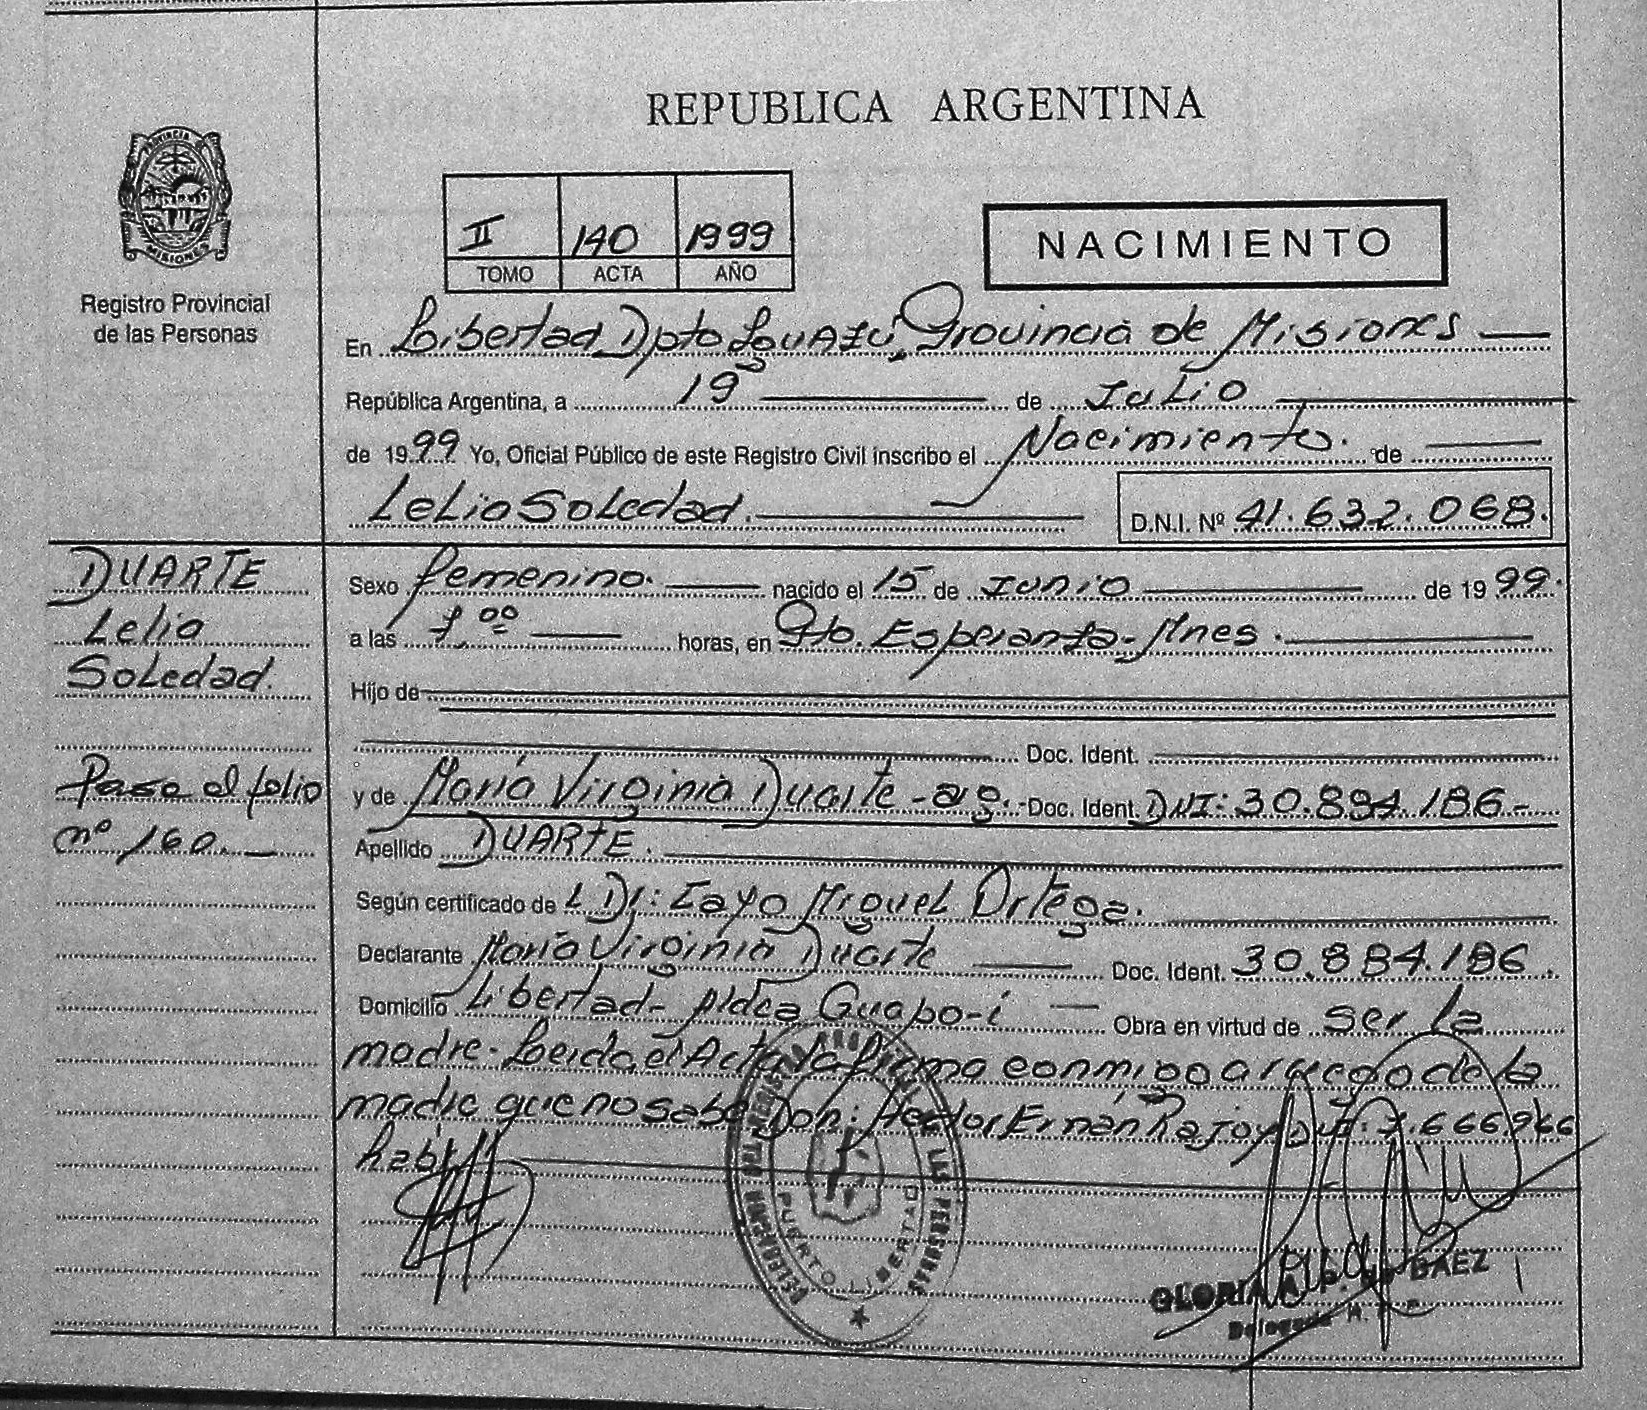 REPUBLICA ARGENTINA
PROVINCIA DE MISIONES
Registro Provincial
de las Personas
II 140 1999
TOMO ACTA AÑO
NACIMIENTO
En Libertad Dpto Iguazú, Provincia de Misiones
República Argentina, a 19 de Julio
de 1999 Yo, Oficial Público de este Registro Civil inscribo el Nacimiento. de
Lelia Soledad. D.N.I. Nº 41.632.068.
DUARTE
Lelia
Soledad.
Pasa al folio
nº 160.
Sexo femenino. nacido el 15 de Junio de 1999.
a las 7.00 horas, en Pto. Esperanza-Mnes.
Hijo de
Doc. Ident.
y de María Virginia Duarte - arg. - Doc. Ident. DNI: 30.884.186.-
Apellido DUARTE.
Según certificado de L Dr: Cayo Miguel Ortega.
Declarante María Virginia Duarte Doc. Ident. 30.884.186.
Domicilio Libertad- Aldea Guapo-i Obra en virtud de ser la
madre. Leida el Acta la firma conmigo a ruego de la
madre que no sabe Don: Hector Ernán Rajoy DNI: 7.666966
DELEGACION REGISTRO PROVINCIAL DE LAS PERSONAS
PUERTO LIBERTAD
GLORIA A. P. DE BAEZ
Delegada